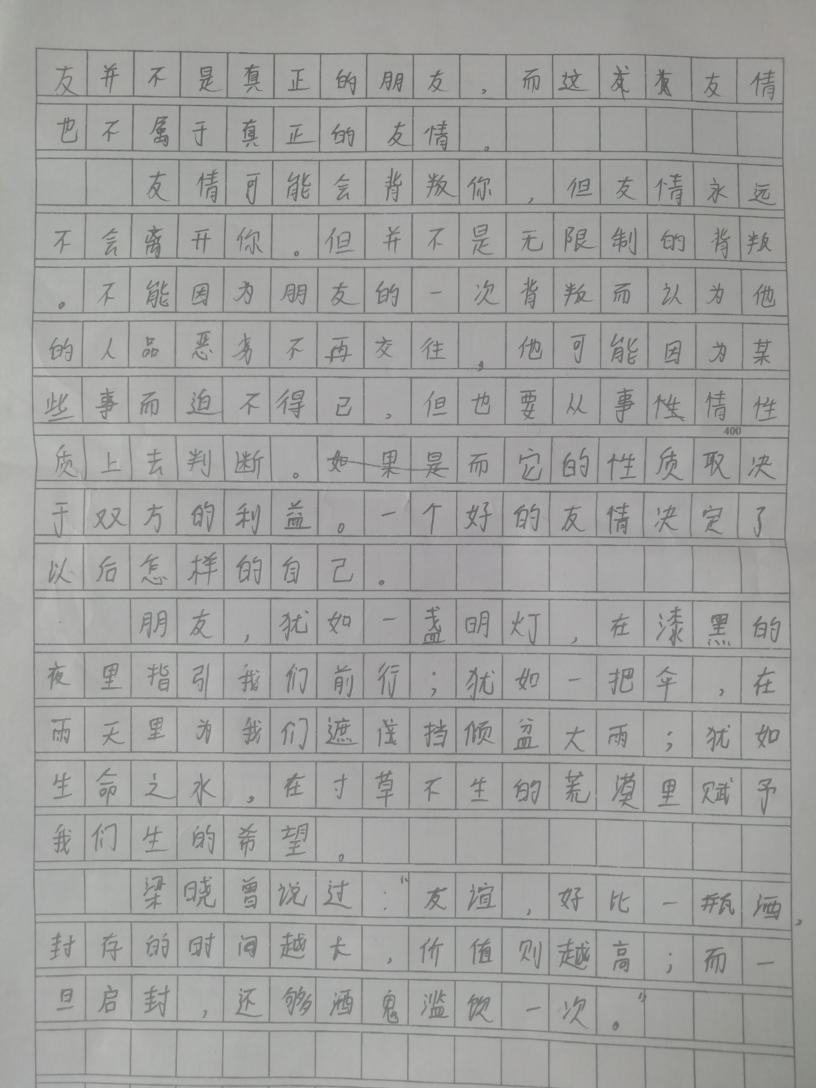 友并不是真正的朋友，而这友情
也不属于真正的友情。
友情可能会背叛你，但友情永远
不会离开你。但并不是无限制的背叛
。不能因为朋友的一次背叛而认为他
的人品恶劣不再交往，他可能因为某
些事而迫不得已，但也要从事性情性
400
质上去判断。如果是而它的性质取决
于双方的利益。一个好的友情决定了
以后怎样的自己。
朋友，犹如一盏明灯，在漆黑的
夜里指引我们前行；犹如一把伞，在
雨天里为我们遮挡倾盆大雨；犹如
生命之水，在寸草不生的荒漠里赋予
我们生的希望。
梁晓曾说过：“友谊，好比一瓶酒，
封存的时间越大，价值则越高；而一
旦启封，还够酒鬼滥饮一次。”